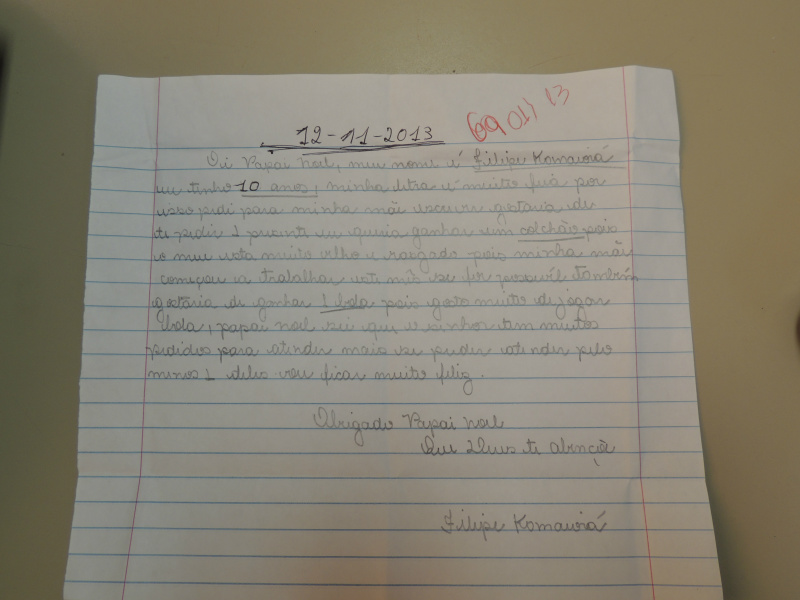 12-11-2013
690113 13
Oi Papai Noel, meu nome é Filipe Komaiorá
eu tenho 10 anos, minha letra é muito feia por
isso pedi para minha mãe escrever gostaria de
te pedir 1 presente eu queria ganhar um colchão pois
o meu esta muito velho e rasgado pois minha mãe
começou a trabalhar este mês se for possivél também
gostaria de ganhar 1 bola pois gosto muito de jogar
bola, papai noel sei que o senhor tem muitos
pedidos para atender mais se puder atender pelo
menos 1 deles vou ficar muito feliz.
Obrigado Papai Noel
Que Deus te abençõe
Filipe Komaiorá